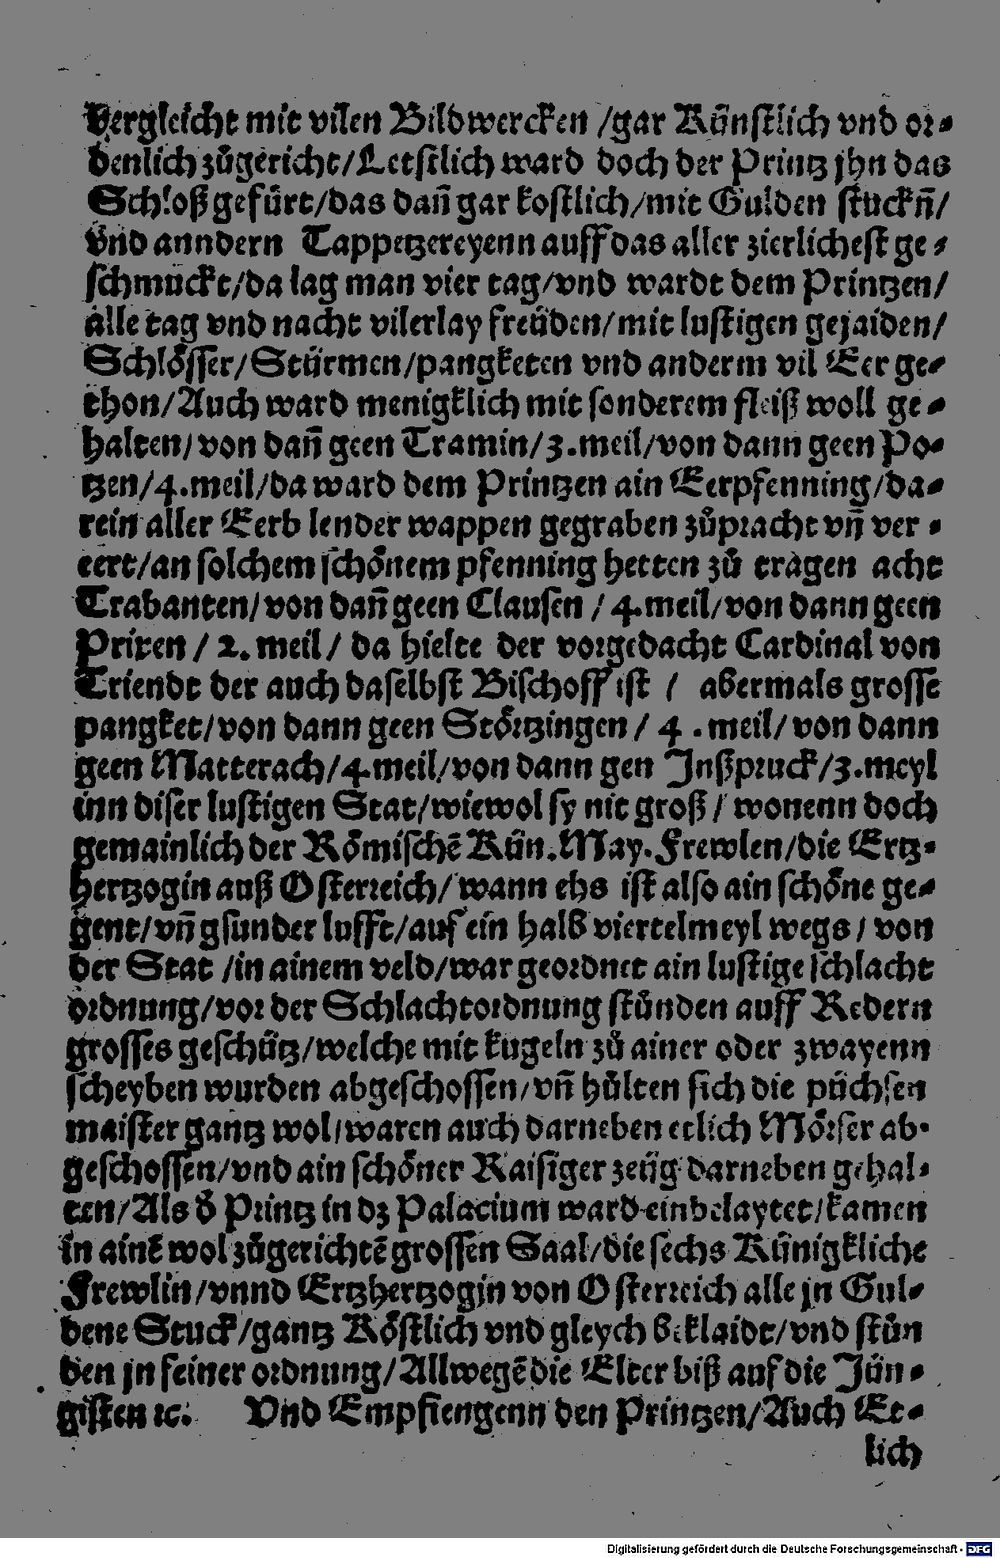 vergleicht mit vilen Bildwercken /gar Künstlich vnd or-
denlich zůgericht/Letstlich ward doch der Printz jhn das
Schloß gefürt/das dañ gar kostlich/mit Gulden stuckñ/
vnd anndern Tappetzereyenn auff das aller zierlichest ge-
schmückt/da lag man vier tag/vnd wardt dem Printzen/
alle tag vnd nacht vilerlay freüden/mit lustigen gejaiden/
Schlösser/Stürmen/pangketen vnd anderm vil Eer ge-
thon/Auch ward menigklich mit sonderem fleiß woll ge-
halten/von dañ geen Tramin/3.meil/von dann geen Po-
tzen/4.meil/da ward dem Printzen ain Eerpfenning/da-
rein aller Eerb lender wappen gegraben zůpracht vñ ver-
eert/an solchem schönem pfenning hetten zů tragen acht
Trabanten/von dañ geen Clausen /4.meil/von dann geen
Prixen / 2. meil/ da hielte der vorgedacht Cardinal von
Triendt der auch daselbst Bischoff ist / abermals grosse
pangket/von dann geen Störtzingen / 4 . meil/ von dann
geen Matterach/4.meil/von dann gen Jnßpruck/3.meyl
inn diser lustigen Stat/wiewol sy nit groß / wonenn doch
gemainlich der Römischē Kün.May.Frewlen/die Ertz-
hertzogin auß Osterreich/wann ehs ist also ain schöne ge-
gent/vñ gsunder lufft/auf ein halb viertelmeyl wegs / von
der Stat /in ainem veld/war geordnet ain lustige schlacht
ordnung/vor der Schlachtordnung stůnden auff Redern
grosses geschütz/welche mit kugeln zů ainer oder zwayenn
scheyben wurden abgeschossen/vñ hůlten sich die püchsen
maister gantz wol/waren auch darneben etlich Mörser ab-
geschossen/vnd ain schöner Raisiger zeüg darneben gehal-
ten/Als ď Printz in dz Palacium ward einbelaytet/kamen
in ainē wol zůgerichtē grossen Saal/die sechs Künigkliche
Frewlin/vnnd Ertzhertzogin von Osterreich alle jn Gul-
dene Stuck/gantz Köstlich vnd gleych beklaidt/vnd stůn
den jn seiner ordnung/Allwegē die Elter biß auf die Jün-
gisten ꝛc. Vnd Empfiengenn den Printzen/Auch Et-
lich
Digitalisierung gefördert durch die Deutsche Forschungsgemeinschaft - DFG